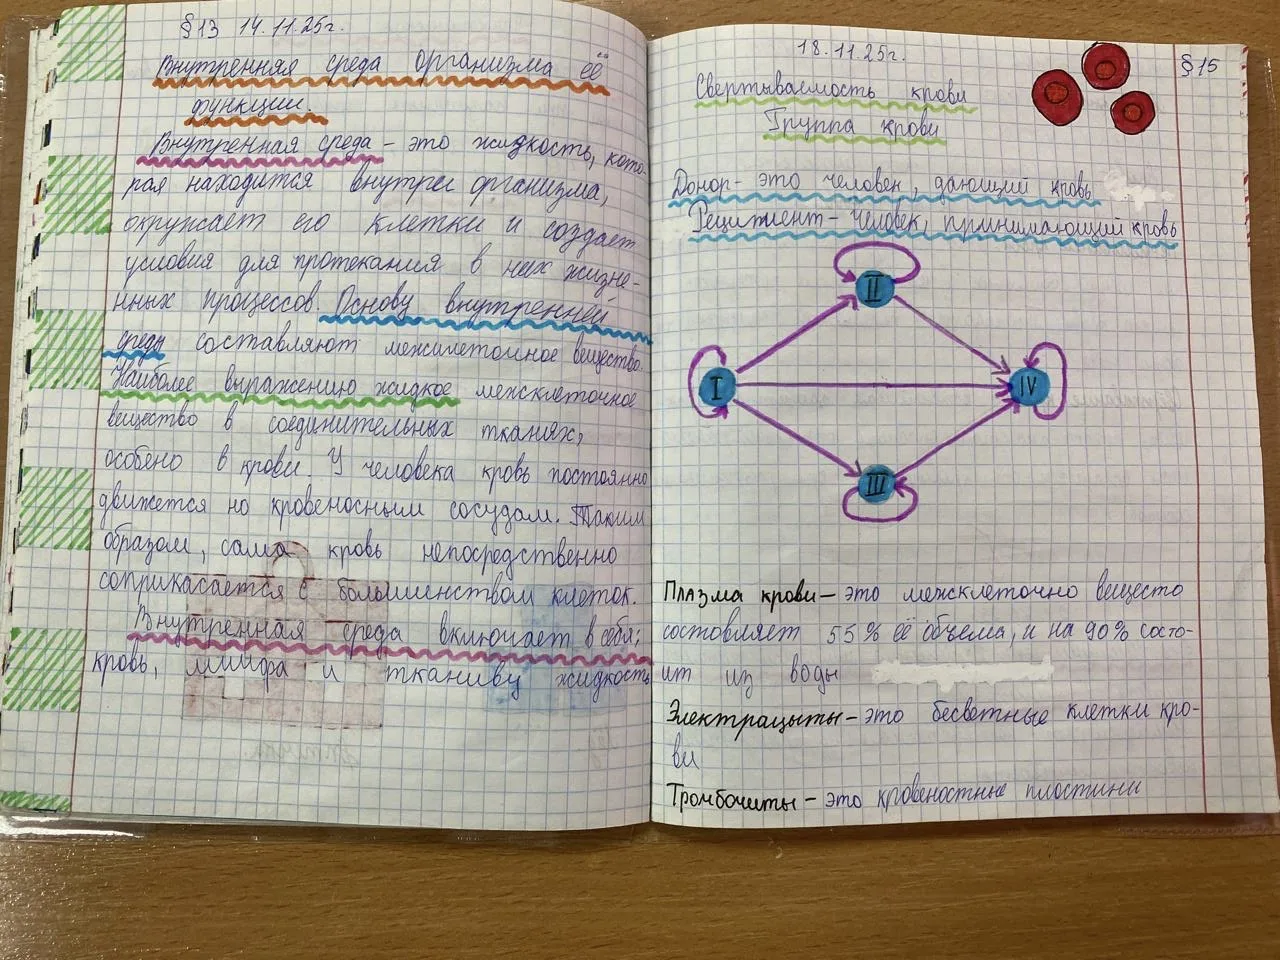 §13 14.11.25г.
Внутренняя среда организма её
функции.
Внутренная среда - это жидкость, кото-
рая находится внутри организма,
окружает его клетки и создает
условия для протекания в них жизне-
нных процессов. Основу внутренней
среды составляют межклеточное вещество.
Наиболее выражению жидкое межклеточное
вещество в соединительных тканях,
особено в крови. У человека кровь постоянно
движется по кровеносным сосудам. Таким
образом, сама кровь непосредственно
соприкасается с большинством клеток.
Внутренная среда включает в себя:
кровь, лимфа и тканиву жидкость
18.11.25г.
§15
Свертываемость крови
Группа крови
Донор - это человек, дающий кровь
Реципиент - человек, принимающий кровь
II
I
IV
III
Плазма крови - это межклеточно вещесто
состовляет 55% её объема, и на 90% состо-
ит из воды
Электрацыты - это бесветные клетки кро-
ви
Тромбоциты - это кровеностные плостини